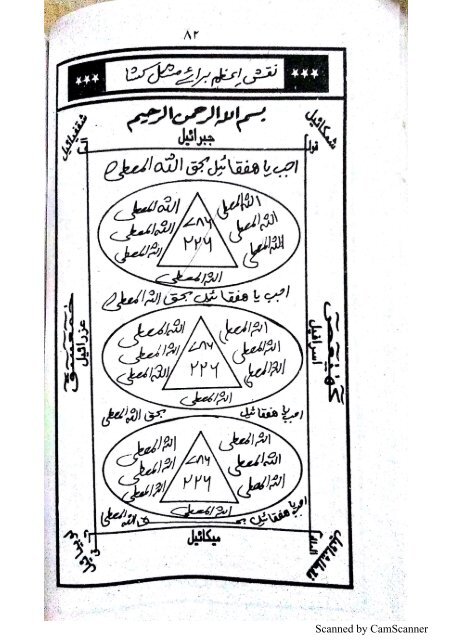 ۸۲
نقش اعظم برائے مشکل کشا
بسم اللہ الرحمن الرحیم
شمکائیل
جبرائیل
اجب یا ھفقائیل بحق اللہ المعطی
اللہ المعطی
اللہ المعطی
اللہ المعطی
۷۸۶
۲۲۶
اللہ المعطی
اللہ المعطی
اللہ المعطی
اللہ المعطی
اجب یا ھفقائیل بحق اللہ المعطی
اللہ المعطی
اللہ المعطی
اللہ المعطی
۷۸۶
۲۲۶
اللہ المعطی
اللہ المعطی
اللہ المعطی
اللہ المعطی
اجب یا ھفقائیل بحق اللہ المعطی
اللہ المعطی
اللہ المعطی
اللہ المعطی
۷۸۶
۲۲۶
اللہ المعطی
اللہ المعطی
اللہ المعطی
اللہ المعطی
اجب یا ھفقائیل بحق اللہ المعطی
کھیعص
اسرافیل
عزرائیل
حمعسق
میکائیل
Scanned by CamScanner